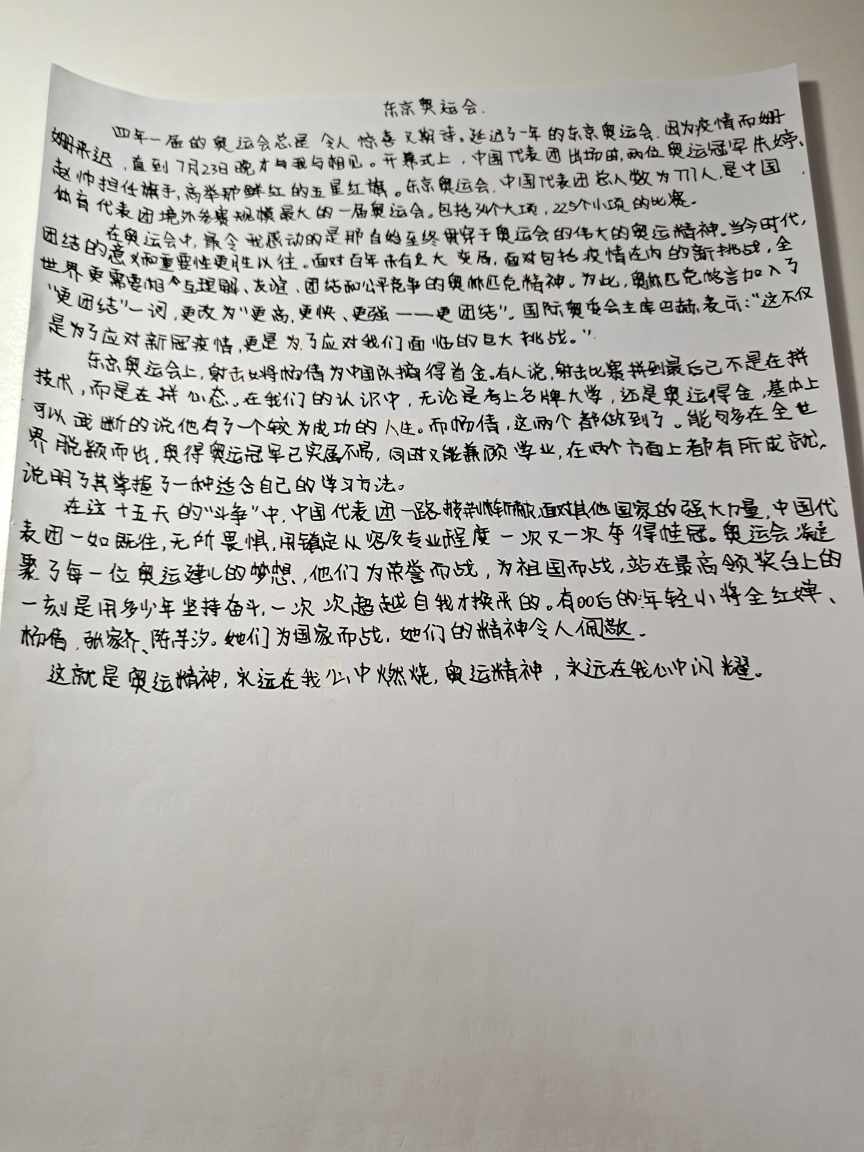 东京奥运会.
四年一届的奥运会总是令人惊喜又期待。延迟了一年的东京奥运会,因为疫情而姗
姗来迟,直到7月23日晚才与我与相见。开幕式上,中国代表团出场时,两位奥运冠军朱婷、
赵帅担任旗手,高举那鲜红的五星红旗。东京奥运会,中国代表团总人数为777人,是中国
体育代表团境外参赛规模最大的一届奥运会。包括30个大项,225个小项的比赛。
在奥运会中,最令我感动的是那自始至终贯穿于奥运会的伟大的奥运精神。当今时代,
团结的意义和重要性更胜以往。面对百年未有之大变局,面对包括疫情在内的新挑战,全
世界更需要相互理解、友谊、团结和公平竞争的奥林匹克精神。为此,奥林匹克格言加入了
“更团结”一词,更改为“更高,更快、更强——更团结”。国际奥委会主席巴赫表示:“这不仅
是为了应对新冠疫情,更是为了应对我们面临的巨大挑战。”
东京奥运会上,射击女将杨倩为中国队摘得首金。有人说,射击比赛拼到最后已不是在拼
技术,而是在拼心态。在我们的认识中,无论是考上名牌大学,还是奥运得金,基本上
可以武断的说他有了一个较为成功的人生。而杨倩,这两个都做到了。能够在全世
界脱颖而出,奥得奥运冠军已实属不易,同时又能兼顾学业,在两个方面上都有所成就,
说明了其掌握了一种适合自己的学习方法。
在这十五天的“斗争”中,中国代表团一路披荆斩棘,面对其他国家的强大力量,中国代
表团一如既往,无所畏惧,用镇定从容及专业程度一次又一次夺得桂冠。奥运会凝
聚了每一位奥运健儿的梦想,他们为荣誉而战,为祖国而战,站在最高领奖台上的
一刻是用多少年坚持奋斗,一次次超越自我才换来的。有00后的年轻小将全红婵、
杨倩,张家齐、陈芋汐。她们为国家而战,她们的精神令人佩服。
这就是奥运精神,永远在我心中燃烧,奥运精神,永远在我心中闪耀。